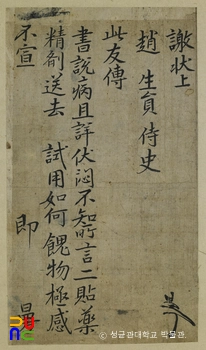 謝狀上
趙 生員 侍史
此友傳
書說病且詳伏悶不知所言二貼藥
精劑送去 試用如何 餽物極感
不宣 卽
© 성균관대학교 박물관